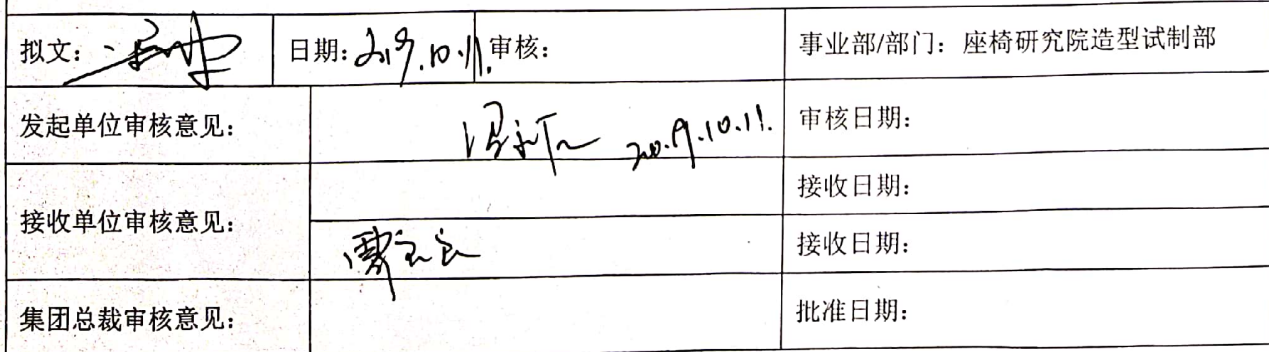 拟文： 日期：2019.10.11. 审核： 事业部/部门：座椅研究院造型试制部
发起单位审核意见： 2019.10.11. 审核日期：
接收单位审核意见：
接收日期：
接收日期：
集团总裁审核意见： 批准日期：